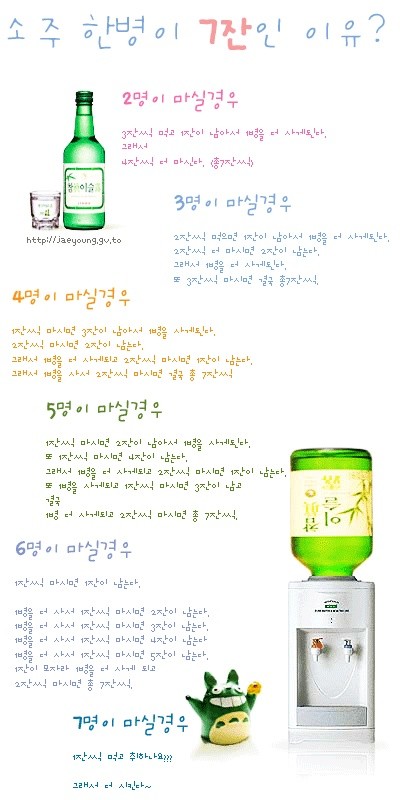 소주 한병이 7잔인 이유?
2명이 마실경우
3잔씩 먹고 1잔이 남아서 1병을 더 사게된다.
그래서
4잔씩 더 마신다. (총7잔씩)
참眞이슬露
http://jaeyoung.gv.to
3명이 마실경우
2잔씩 먹으면 1잔이 남아서 1병을 더 사게된다.
2잔씩 더 마시면 2잔이 남는다.
그래서 1병을 더 사게된다.
또 3잔씩 마시면 결국 총7잔씩.
4명이 마실경우
1잔씩 마시면 3잔이 남아서 1병을 사게된다.
2잔씩 마시면 2잔이 남는다.
그래서 1병을 더 사게되고 2잔씩 마시면 1잔이 남는다.
그래서 1병을 사서 2잔씩 마시면 결국 총 7잔씩
5명이 마실경우
1잔씩 마시면 2잔이 남아서 1병을 사게된다.
또 1잔씩 마시면 4잔이 남는다.
그래서 1병을 더 사게되고 2잔씩 마시면 1잔이 남는다.
또 1병을 사게되고 1잔씩 마시면 3잔이 남고
결국
1병 더 사게되고 2잔씩 마시면 총 7잔씩.
참眞이슬露
6명이 마실경우
1잔씩 마시면 1잔이 남는다.
1병을 더 사서 1잔씩 마시면 2잔이 남는다.
1병을 더 사서 1잔씩 마시면 3잔이 남는다
1병을 더 사서 1잔씩 마시면 4잔이 남는다
1병을 더 사서 1잔씩 마시면 5잔이 남는다.
1잔이 모자라 1병을 더 사게 되고
2잔씩 마시면 총 7잔씩.
7명이 마실경우
1잔씩 먹고 취하나요???
그래서 더 시킨다~